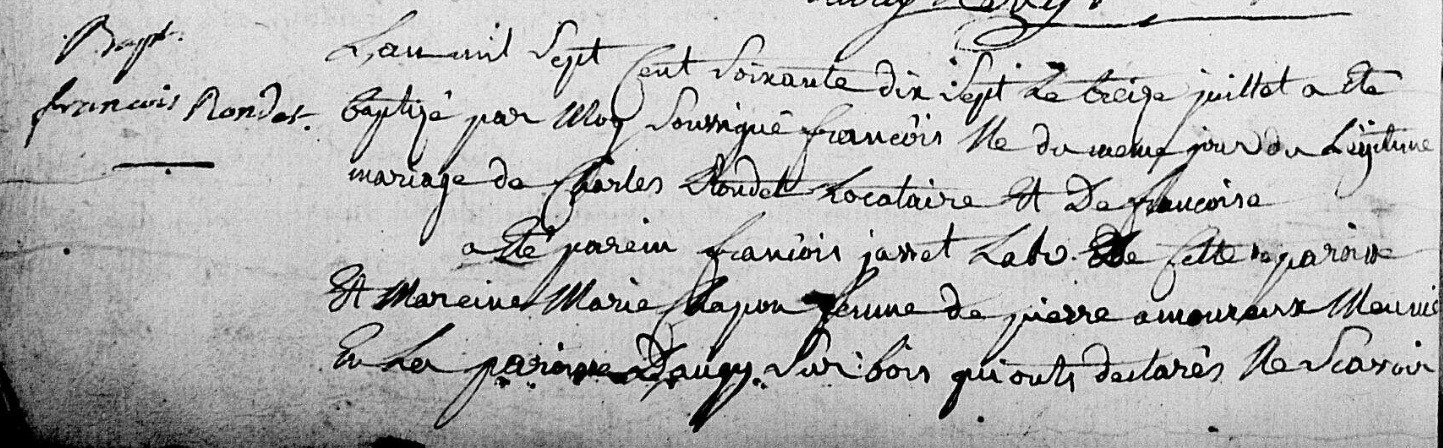 Bapt.
francois Rondet.
L'an mil Sept Cent Soixante dix Sept Le treize juillet a Eté
baptizé par Moy Soussigné francois Né du meme jour du Légitime
mariage de Charles Rondet Locataire Et De francoise
a Eté parein francois jarret Labr. De Cette paroisse
Et Mareine Marie Chapon femme de pierre amoureux Meunié
En La paroisse D'augy Sur bois qui onts declarés Ne Scavoir